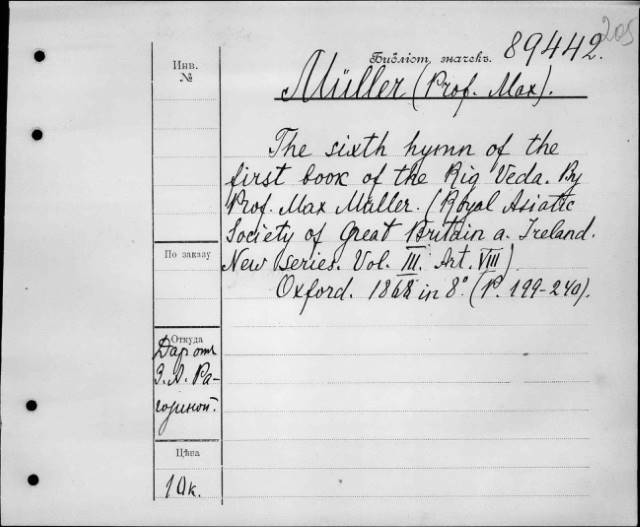 205
Библіот. значекъ. 89442.
Инв.
№
Müller (Prof. Max).
The sixth hymn of the
first book of the Rig Veda. By
Prof. Max Müller. (Royal Asiatic
Society of Great Britain a. Ireland.
New series. Vol. III. Art. VIII)
Oxford. 1868 in 8° (P. 199-240).
По заказу
Откуда
Дар отъ
З. А. Ра-
гозиной.
Цѣна
10к.